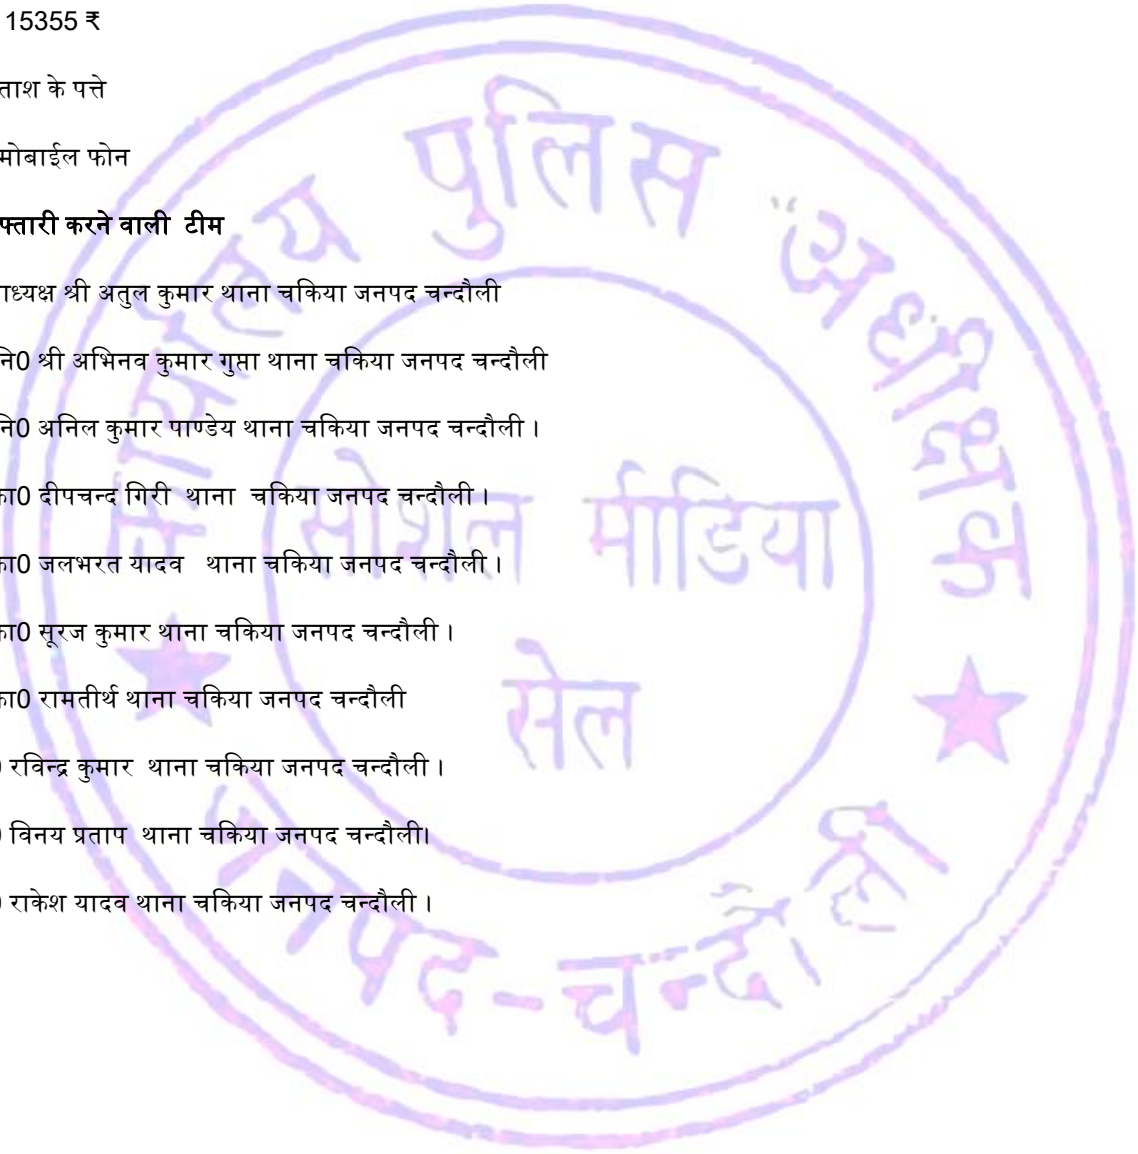 15355 ₹
ताश के पत्ते
मोबाईल फोन
फ्तारी करने वाली टीम
ाध्यक्ष श्री अतुल कुमार थाना चकिया जनपद चन्दौली
नि0 श्री अभिनव कुमार गुप्ता थाना चकिया जनपद चन्दौली
नि0 अनिल कुमार पाण्डेय थाना चकिया जनपद चन्दौली ।
का0 दीपचन्द गिरी थाना चकिया जनपद चन्दौली ।
का0 जलभरत यादव थाना चकिया जनपद चन्दौली ।
का0 सूरज कुमार थाना चकिया जनपद चन्दौली ।
का0 रामतीर्थ थाना चकिया जनपद चन्दौली
रविन्द्र कुमार थाना चकिया जनपद चन्दौली ।
विनय प्रताप थाना चकिया जनपद चन्दौली।
राकेश यादव थाना चकिया जनपद चन्दौली ।
कार्यालय पुलिस अधीक्षक
सोशल मीडिया
सेल
जनपद-चन्दौली